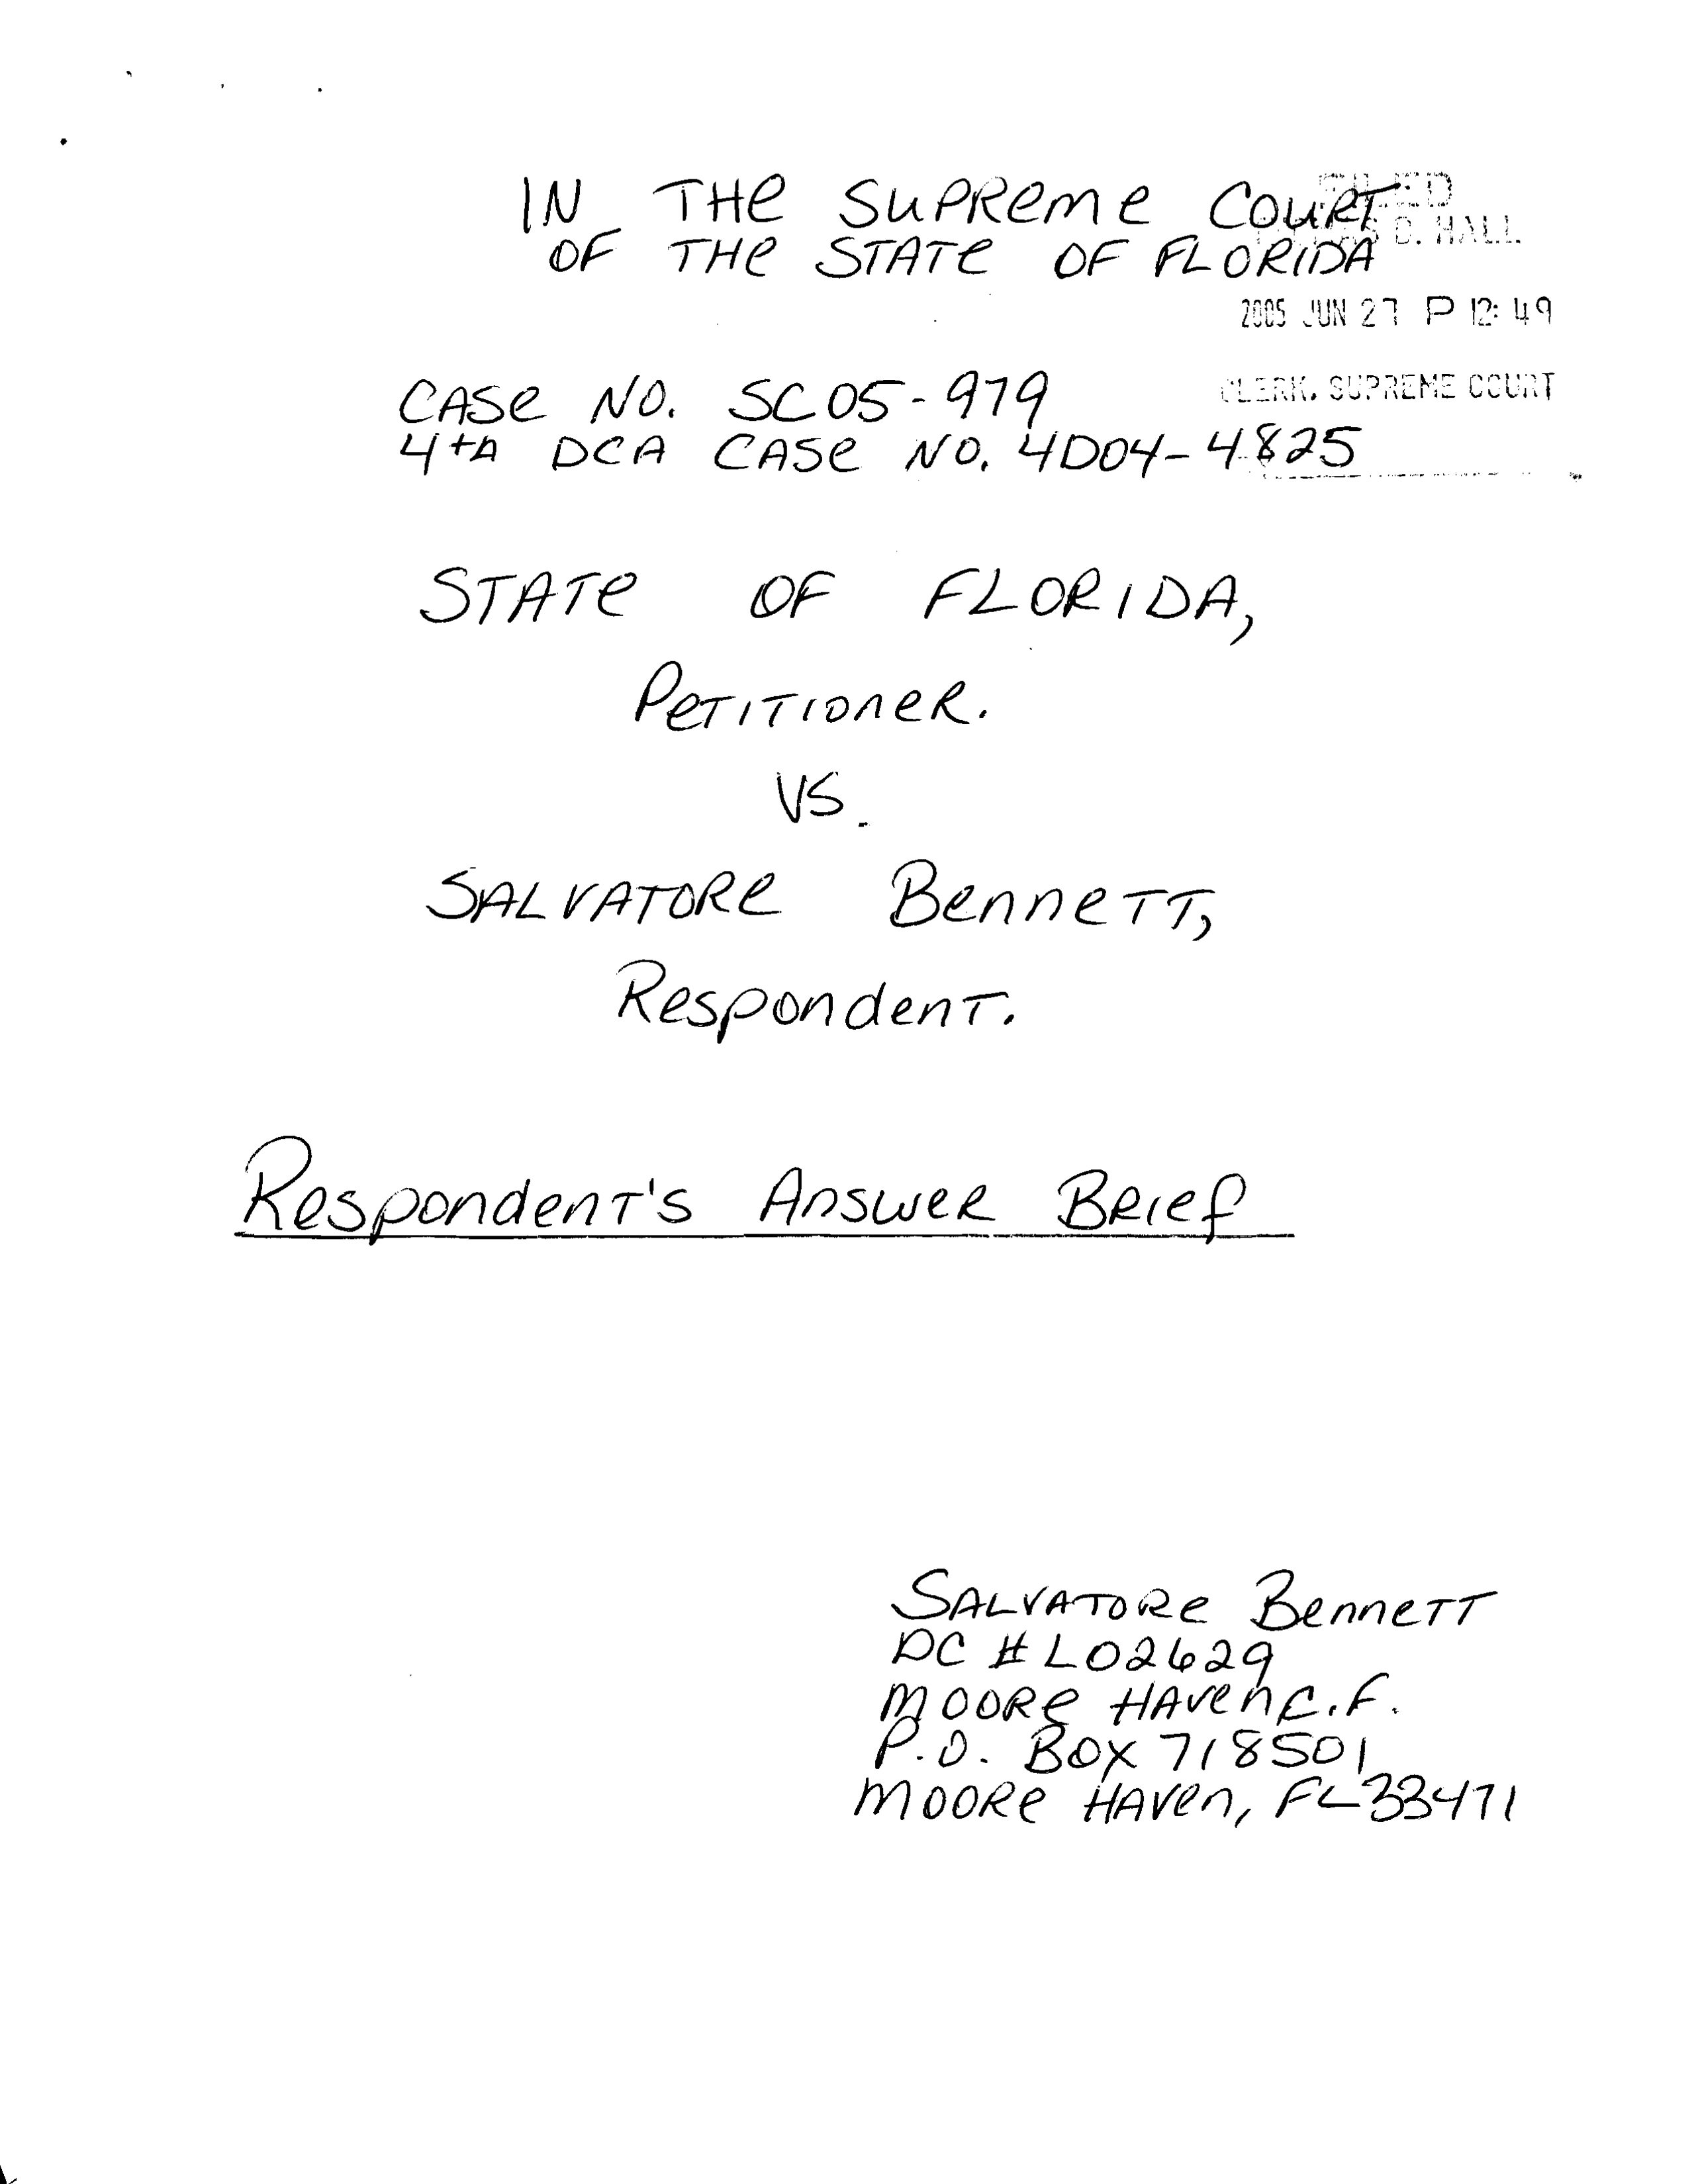 IN THE SUPREME COURT
FILED
OF THE STATE OF FLORIDA
D. HALL
2005 JUN 27 P 12:49
CASE NO. SC05-979
CLERK, SUPREME COURT
4th DCA CASE NO. 4D04-4825
STATE OF FLORIDA,
PETITIONER.
VS.
SALVATORE BENNETT,
RESPONDENT.
RESPONDENT'S ANSWER BRIEF
SALVATORE BENNETT
DC # L02629
MOORE HAVEN C.F.
P.O. BOX 718501
MOORE HAVEN, FL 33471